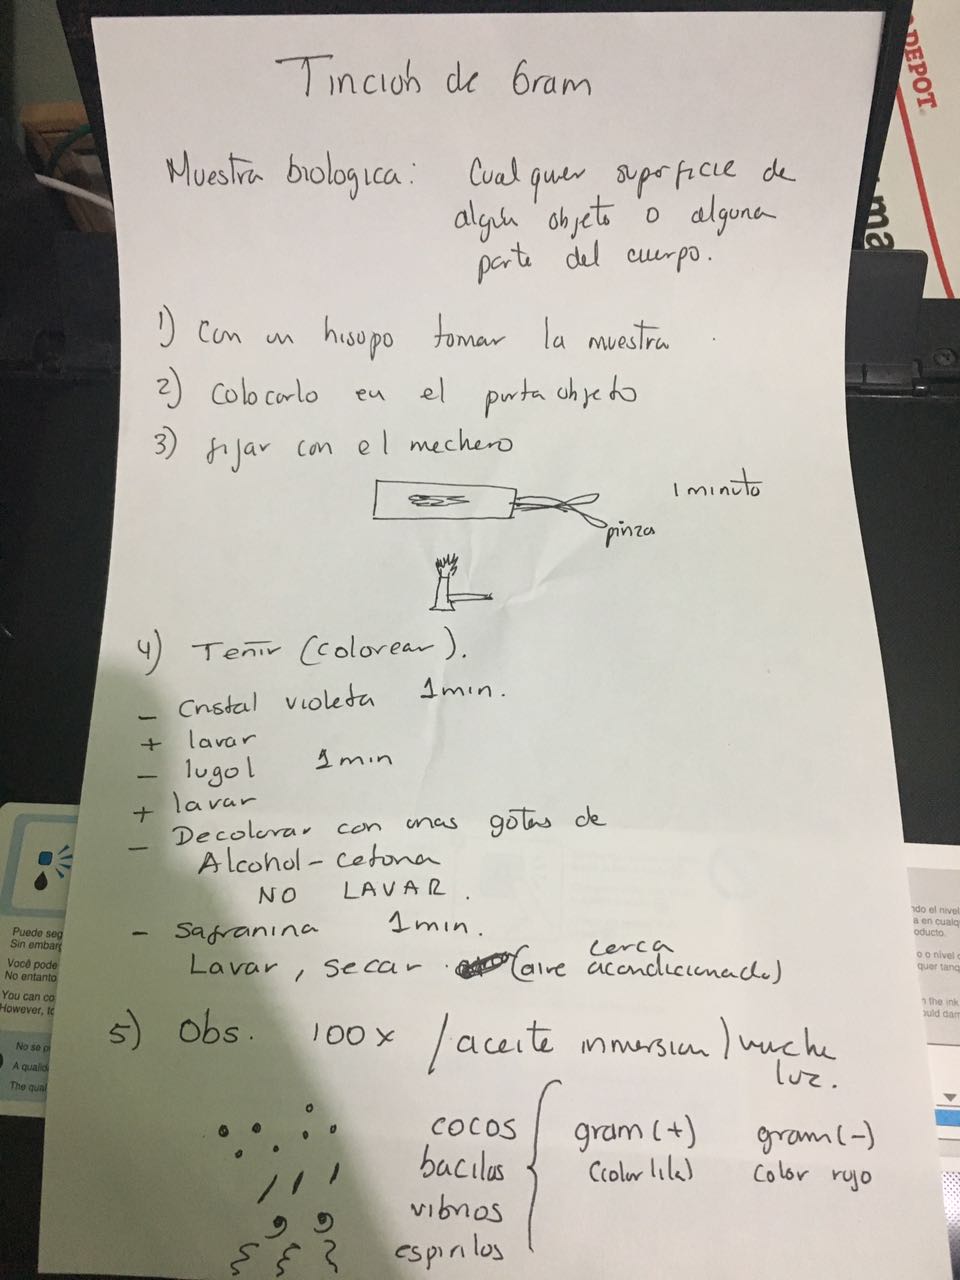 Tinción de Gram
Muestra biologica: Cualquier superficie de
algún objeto o alguna
parte del cuerpo.
1) Con un hisopo tomar la muestra
2) Colocarlo en el porta objeto
3) fijar con el mechero
1 minuto
pinza
4) Teñir (colorear).
- Cristal violeta 1 min.
+ lavar
- lugol 1 min
+ lavar
- Decolorar con unas gotas de
Alcohol-cetona
NO LAVAR.
- Safranina 1 min.
Lavar, secar (aire acondicionado)
cerca
5) Obs. 100x / aceite inmersion / mucha
luz.
cocos
bacilos
vibrios
espirilos
gram (+) gram (-)
(color lila) color rojo
DEPOT
ma
Puede seg
Sin embar
Você pode
No entanto
You can co
However, to
No se p
A qualid
The qual
ndo el nivel
a en cualq
oducto.
o o nivel
quer tanq
n the ink
ould dam